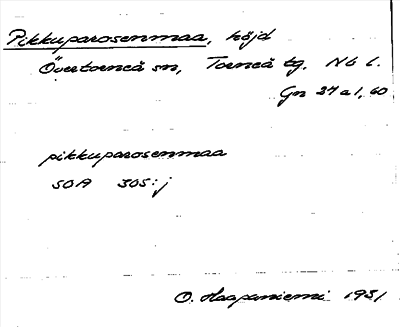 Pikkuparosenmaa, höjd
Övertorneå sn, Torneå tg. Nb l.
Gn 27 a 1, 60
pikkuparosenmaa
SOA 305:j
O. Haapaniemi 1931